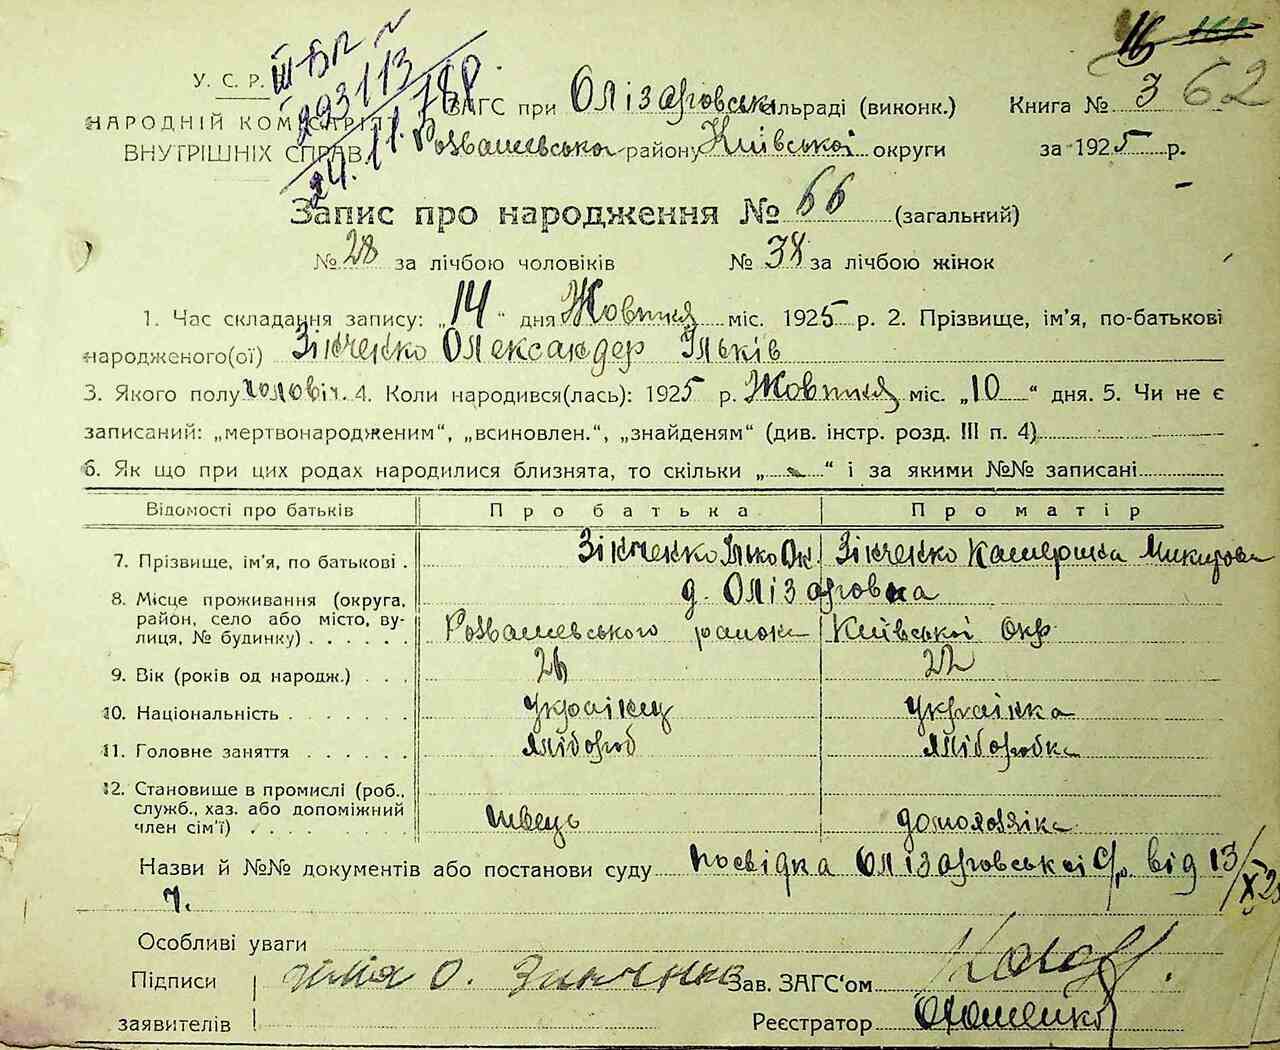 16
У. С. Р. ЗАГС при Олізаровськ сільраді (виконк.) Книга № 3 62
НАРОДНІЙ КОМІСАРІЯТ Розважевської району Київської округи за 1925 р.
ВНУТРІШНІХ СПРАВ
293113
24.11.78р.
Запис про народження № 66 (загальний)
№ 28 за лічбою чоловіків № 38 за лічбою жінок
1. Час складання запису: „14“ дня Жовтня міс. 1925 р. 2. Прізвище, ім'я, по-батькові
народженого(ої) Зінченко Олександер Ільків
3. Якого полу чоловіч. 4. Коли народився(лась): 1925 р. Жовтня міс. „10“ дня. 5. Чи не є
записаний: „мертвонародженим“, „всиновлен.“, „знайденям“ (див. інстр. розд. III п. 4)
6. Як що при цих родах народилися близнята, то скільки „-“ і за якими №№ записані
Відомості про батьків Про батька Про матір
7. Прізвище, ім'я, по батькові . Зінченко Ілько Ол. Зінченко Катерина Микитова
8. Місце проживання (округа, д. Олізаровка
район, село або місто, ву- Розважевського району Київської Окр
лиця, № будинку) . . . . . .
9. Вік (років од народж.) . . . 26 22
10. Національність . . . . . . . Українец Українка
11. Головне заняття . . . . . . Хлібороб Хліборобка
12. Становище в промислі (роб.,
служб., хаз. або допоміжний
член сім'ї) . . . . швець домохазяїка
Назви й №№ документів або постанови суду посвідка Олізаровської С/р. від 13/X 25
р.
Особливі уваги
Підписи Ілія О. Зинченко Зав. ЗАГС'ом
заявителів Реєстратор